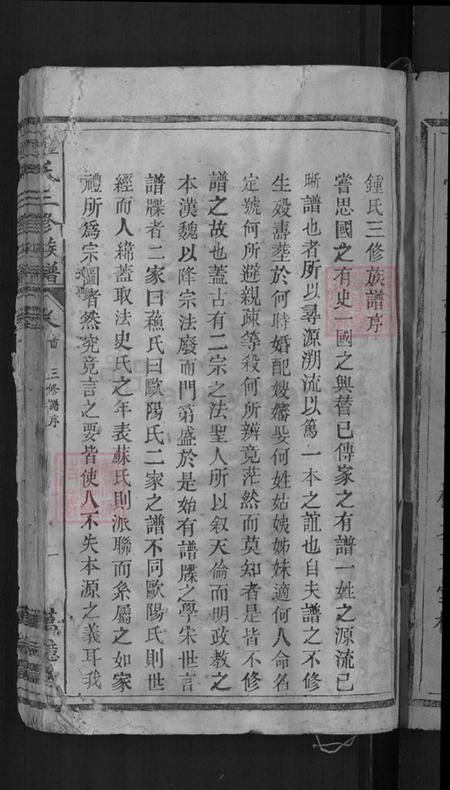 鍾氏三修族譜序
嘗思國之有史一國之興替已傳家之有譜一姓之源流已
晰譜也者所以尋源溯流以篤一本之誼也自夫譜之不修
生殁壽塟於何時婚配嫂醮娶何姓姑姨姊妹適何人命名
定號何所避親疎等殺何所辨竟茫然而莫知者是皆不修
譜之故也蓋古有二宗之法聖人所以叙天倫而明政教之
本漢魏以降宗法廢而門第盛於是始有譜牒之學宋世言
譜牒者二家曰蘓氏曰歐陽氏二家之譜不同歐陽氏則世
經而人緯蓋取法史氏之年表蘇氏則派聯而系屬之如家
禮所為宗圖者然究竟言之要皆使人不失本源之義耳我
氏三修族譜
首
三修譜序
一